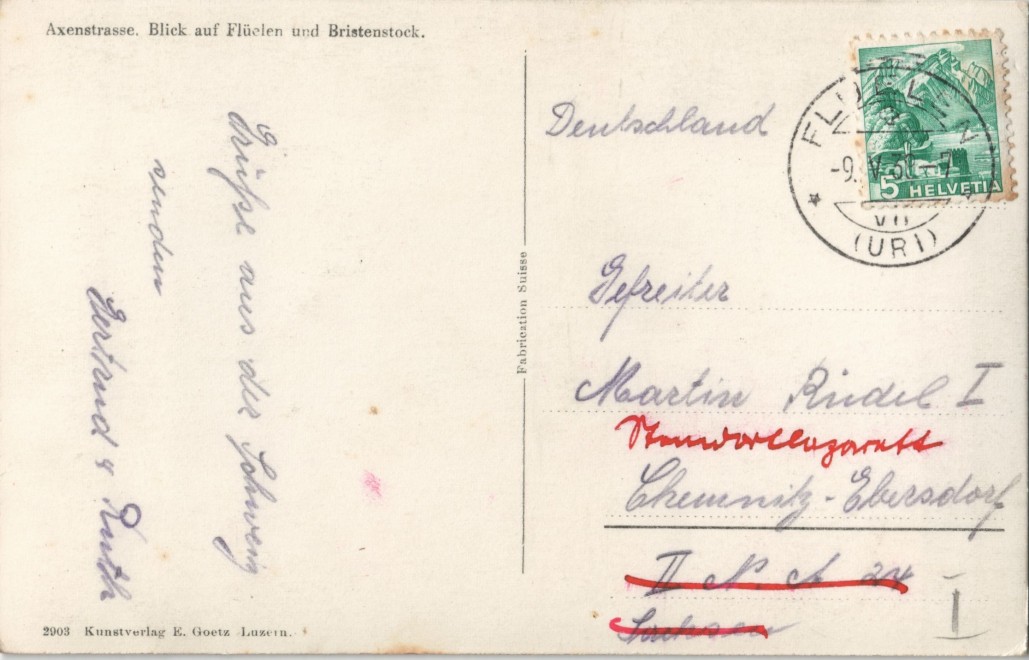 Axenstrasse. Blick auf Flüelen und Bristenstock.
Grüße aus der Schweiz
senden
Gertrud & Ruth
2903 Kunstverlag E. Goetz Luzern.
Fabrication Suisse
FLÜELEN
-9. V. 37-7
VII
(URI)
5 HELVETIA
Deutschland
Gefreiter
Martin Riedel I
Standortlazarett
Chemnitz-Ebersdorf
II N. A 24
Sachsen
I